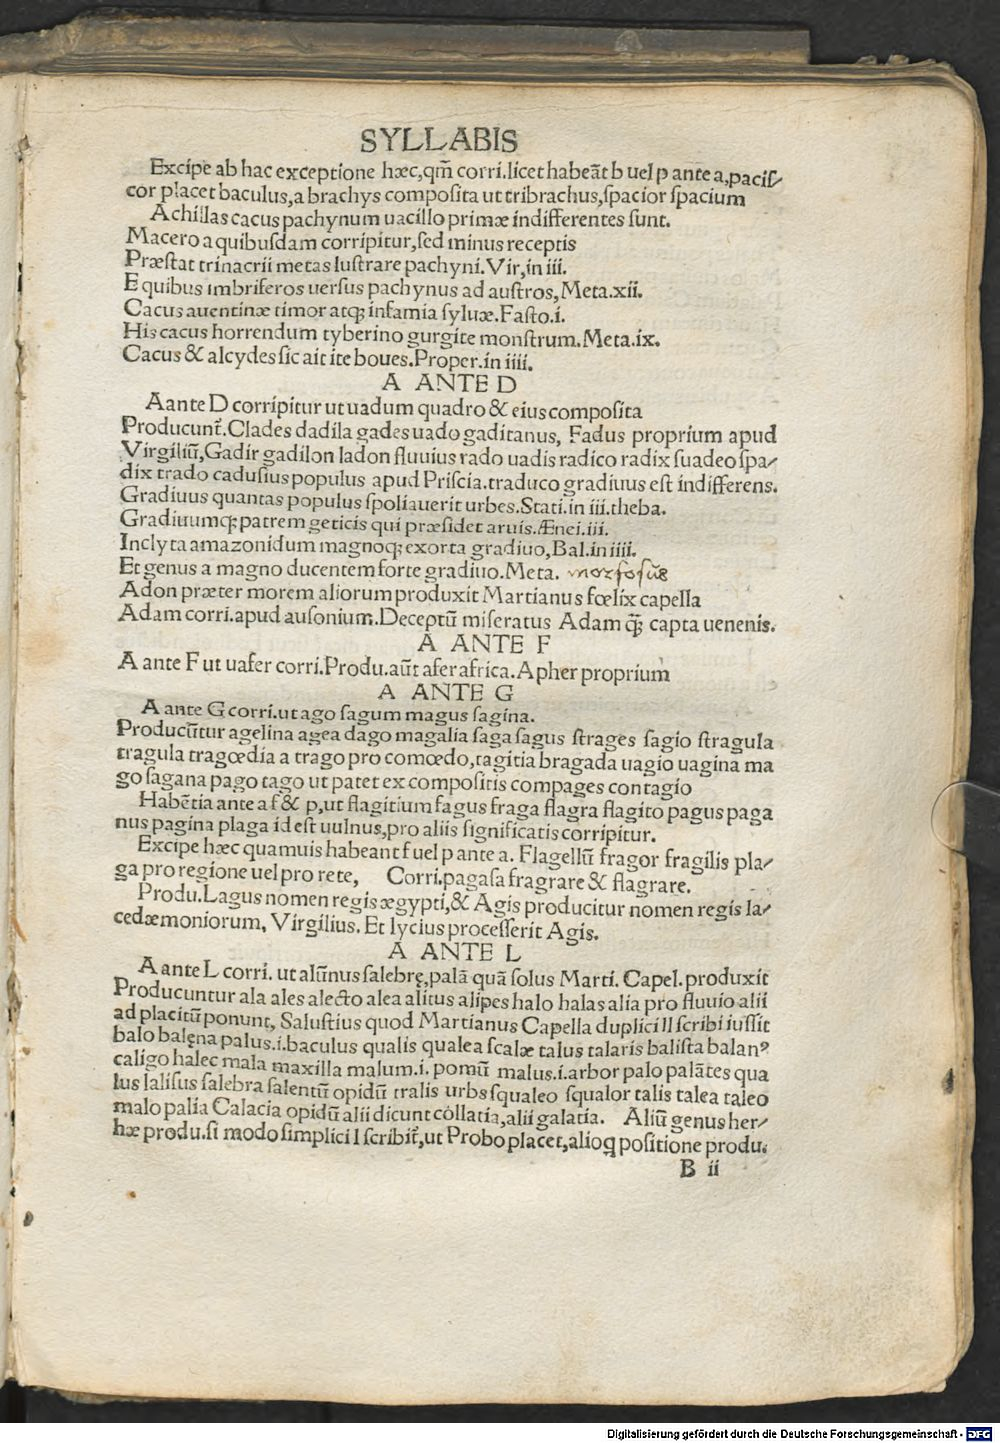 SYLLABIS
Excipe ab hac exceptione hæc,qm̄ corri.licet habeāt b uel p ante a,pacis/
cor placet baculus,a brachys composita ut tribrachus,spacior spacium
Achillas cacus pachynum uacillo primæ indifferentes sunt.
Macero a quibusdam corripitur,sed minus receptis
Præstat trinacrii metas lustrare pachyni.Vir,in iii.
E quibus imbriferos uersus pachynus ad austros,Meta.xii.
Cacus auentinæ timor atq; infamia syluæ.Fasto.i.
His cacus horrendum tyberino gurgite monstrum.Meta.ix.
Cacus & alcydes sic ait ite boues.Proper.in iiii.
A ANTE D
A ante D corripitur ut uadum quadro & eius composita
Producunt̄.Clades dadila gades uado gaditanus, Fadus proprium apud
Virgiliū,Gadir gadilon ladon fluuius rado uadis radico radix suadeo spa/
dix trado cadusius populus apud Priscia.traduco gradiuus est indifferens.
Gradiuus quantas populus spoliauerit urbes.Stati.in iii.theba.
Gradiuumq; patrem geticis qui præsidet aruis.Ænei.iii.
Inclyta amazonidum magnoq; exorta gradiuo,Bal.in iiii.
Et genus a magno ducentem forte gradiuo.Meta. morfosūs
Adon præter morem aliorum produxit Martianus fœlix capella
Adam corri.apud ausonium.Deceptū miseratus Adam q̄; capta uenenis.
A ANTE F
A ante F ut uafer corri.Produ.aūt afer africa.Apher proprium
A ANTE G
A ante G corri.ut ago sagum magus sagina.
Producūtur agelina agea dago magalia saga sagus strages sagio stragula
tragula tragœdia a trago pro comœdo,tagitia bragada uagio uagina ma
go sagana pago tago ut patet ex compositis compages contagio
Habētia ante a f & p,ut flagitium fagus fraga flagra flagito pagus paga
nus pagina plaga id est uulnus,pro aliis significatis corripitur.
Excipe hæc quamuis habeant f uel p ante a. Flagellū fragor fragilis pla/
ga pro regione uel pro rete, Corri.pagasa fragrare & flagrare.
Produ.Lagus nomen regis ægypti,& Agis producitur nomen regis la/
cedæmoniorum, Virgilius. Et lycius processerit Agis.
A ANTE L
A ante L corri. ut alūnus salebrę,palā quā solus Marti. Capel.produxit
Producuntur ala ales alecto alea alitus alipes halo halas alia pro fluuio alii
ad placitū ponunt, Salustius quod Martianus Capella duplici ll scribi iussit
balo balęna palus.i.baculus qualis qualea scalæ talus talaris balista balanꝰ
caligo halec mala maxilla malum.i. pomū malus.i.arbor palo palātes qua
lus lalisus salebra salentū opidū tralis urbs squaleo squalor talis talea taleo
malo palia Calacia opidū alii dicunt collatia,alii galatia. Aliū genus her/
bæ produ.si modo simplici l scribit̄,ut Probo placet,alioq positione produ.
B ii
Digitalisierung gefördert durch die Deutsche Forschungsgemeinschaft - DFG